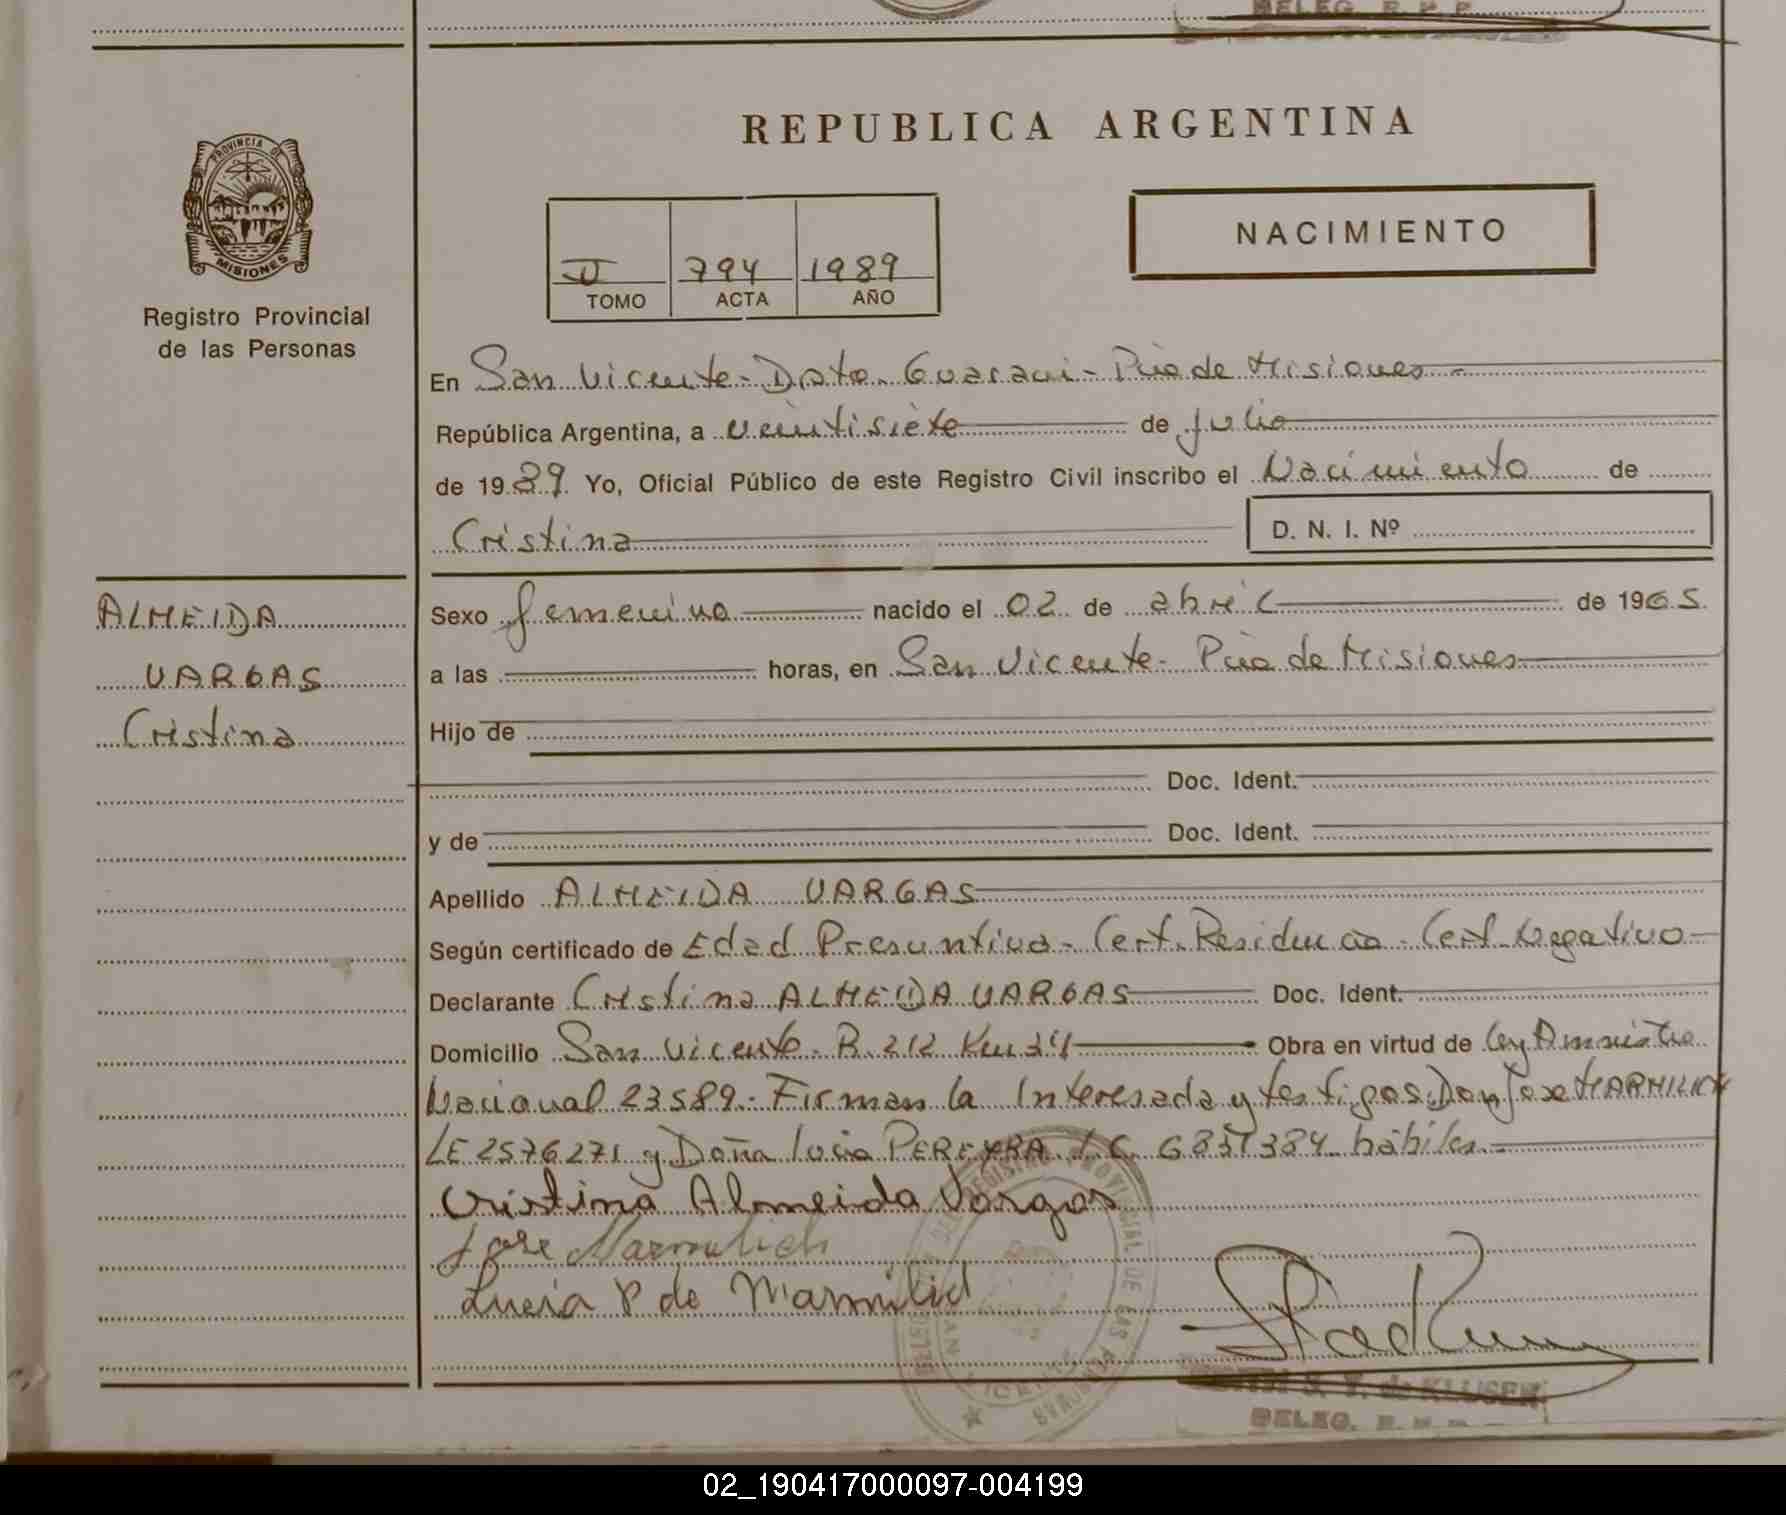 DELEG. R. P. P.
REPUBLICA ARGENTINA
PROVINCIA DE
MISIONES
NACIMIENTO
II 794 1989
TOMO ACTA AÑO
Registro Provincial
de las Personas
En San Vicente - Dpto. Guarani - Pcia de Misiones -
República Argentina, a veintisiete de Julio
de 1989. Yo, Oficial Público de este Registro Civil inscribo el Nacimiento de
Cristina D. N. I. Nº
ALMEIDA
VARGAS
Cristina
Sexo femenino nacido el 02 de abril de 1965.
a las horas, en San Vicente - Pcia de Misiones
Hijo de
Doc. Ident.
y de Doc. Ident.
Apellido ALMEIDA VARGAS
Según certificado de Edad Presuntiva - Cert. Residencia - Cert. Negativo -
Declarante Cristina ALMEIDA VARGAS Doc. Ident.
Domicilio San Vicente - R. 212 Km 34 Obra en virtud de Ley Amnistia
Nacional 23589 - Firman la Interesada y testigos Don Jose MARMILICH
LE 2576271 y Doña Lucia PEREYRA L.C. 6851384 hábiles.
Cristina Almeida Vargas
Jose Marmilich
Lucia P de Marmilich
REGISTRO PROVINCIAL DE LAS PERSONAS
S. T. de KLUSEN
DELEG. R. P. P.
02_190417000097-004199